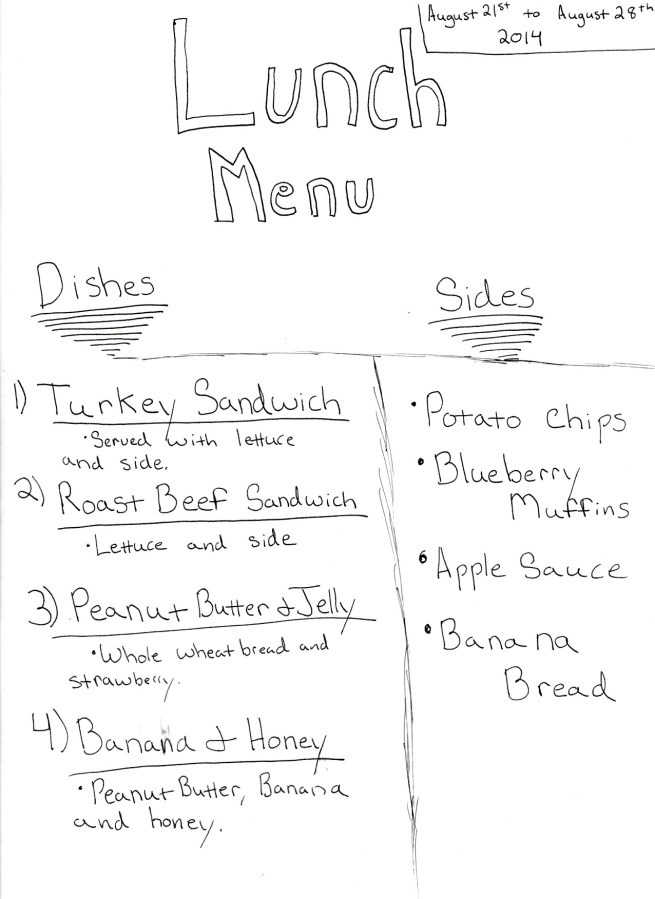 August 21st to August 28th
2014
Lunch
Menu
Dishes
1) Turkey Sandwich
·Served with lettuce
and side.
2) Roast Beef Sandwich
·Lettuce and side
3) Peanut Butter & Jelly
·Whole wheat bread and
strawberry.
4) Banana & Honey
·Peanut Butter, Banana
and honey.
Sides
·Potato Chips
·Blueberry
Muffins
·Apple Sauce
·Banana
Bread